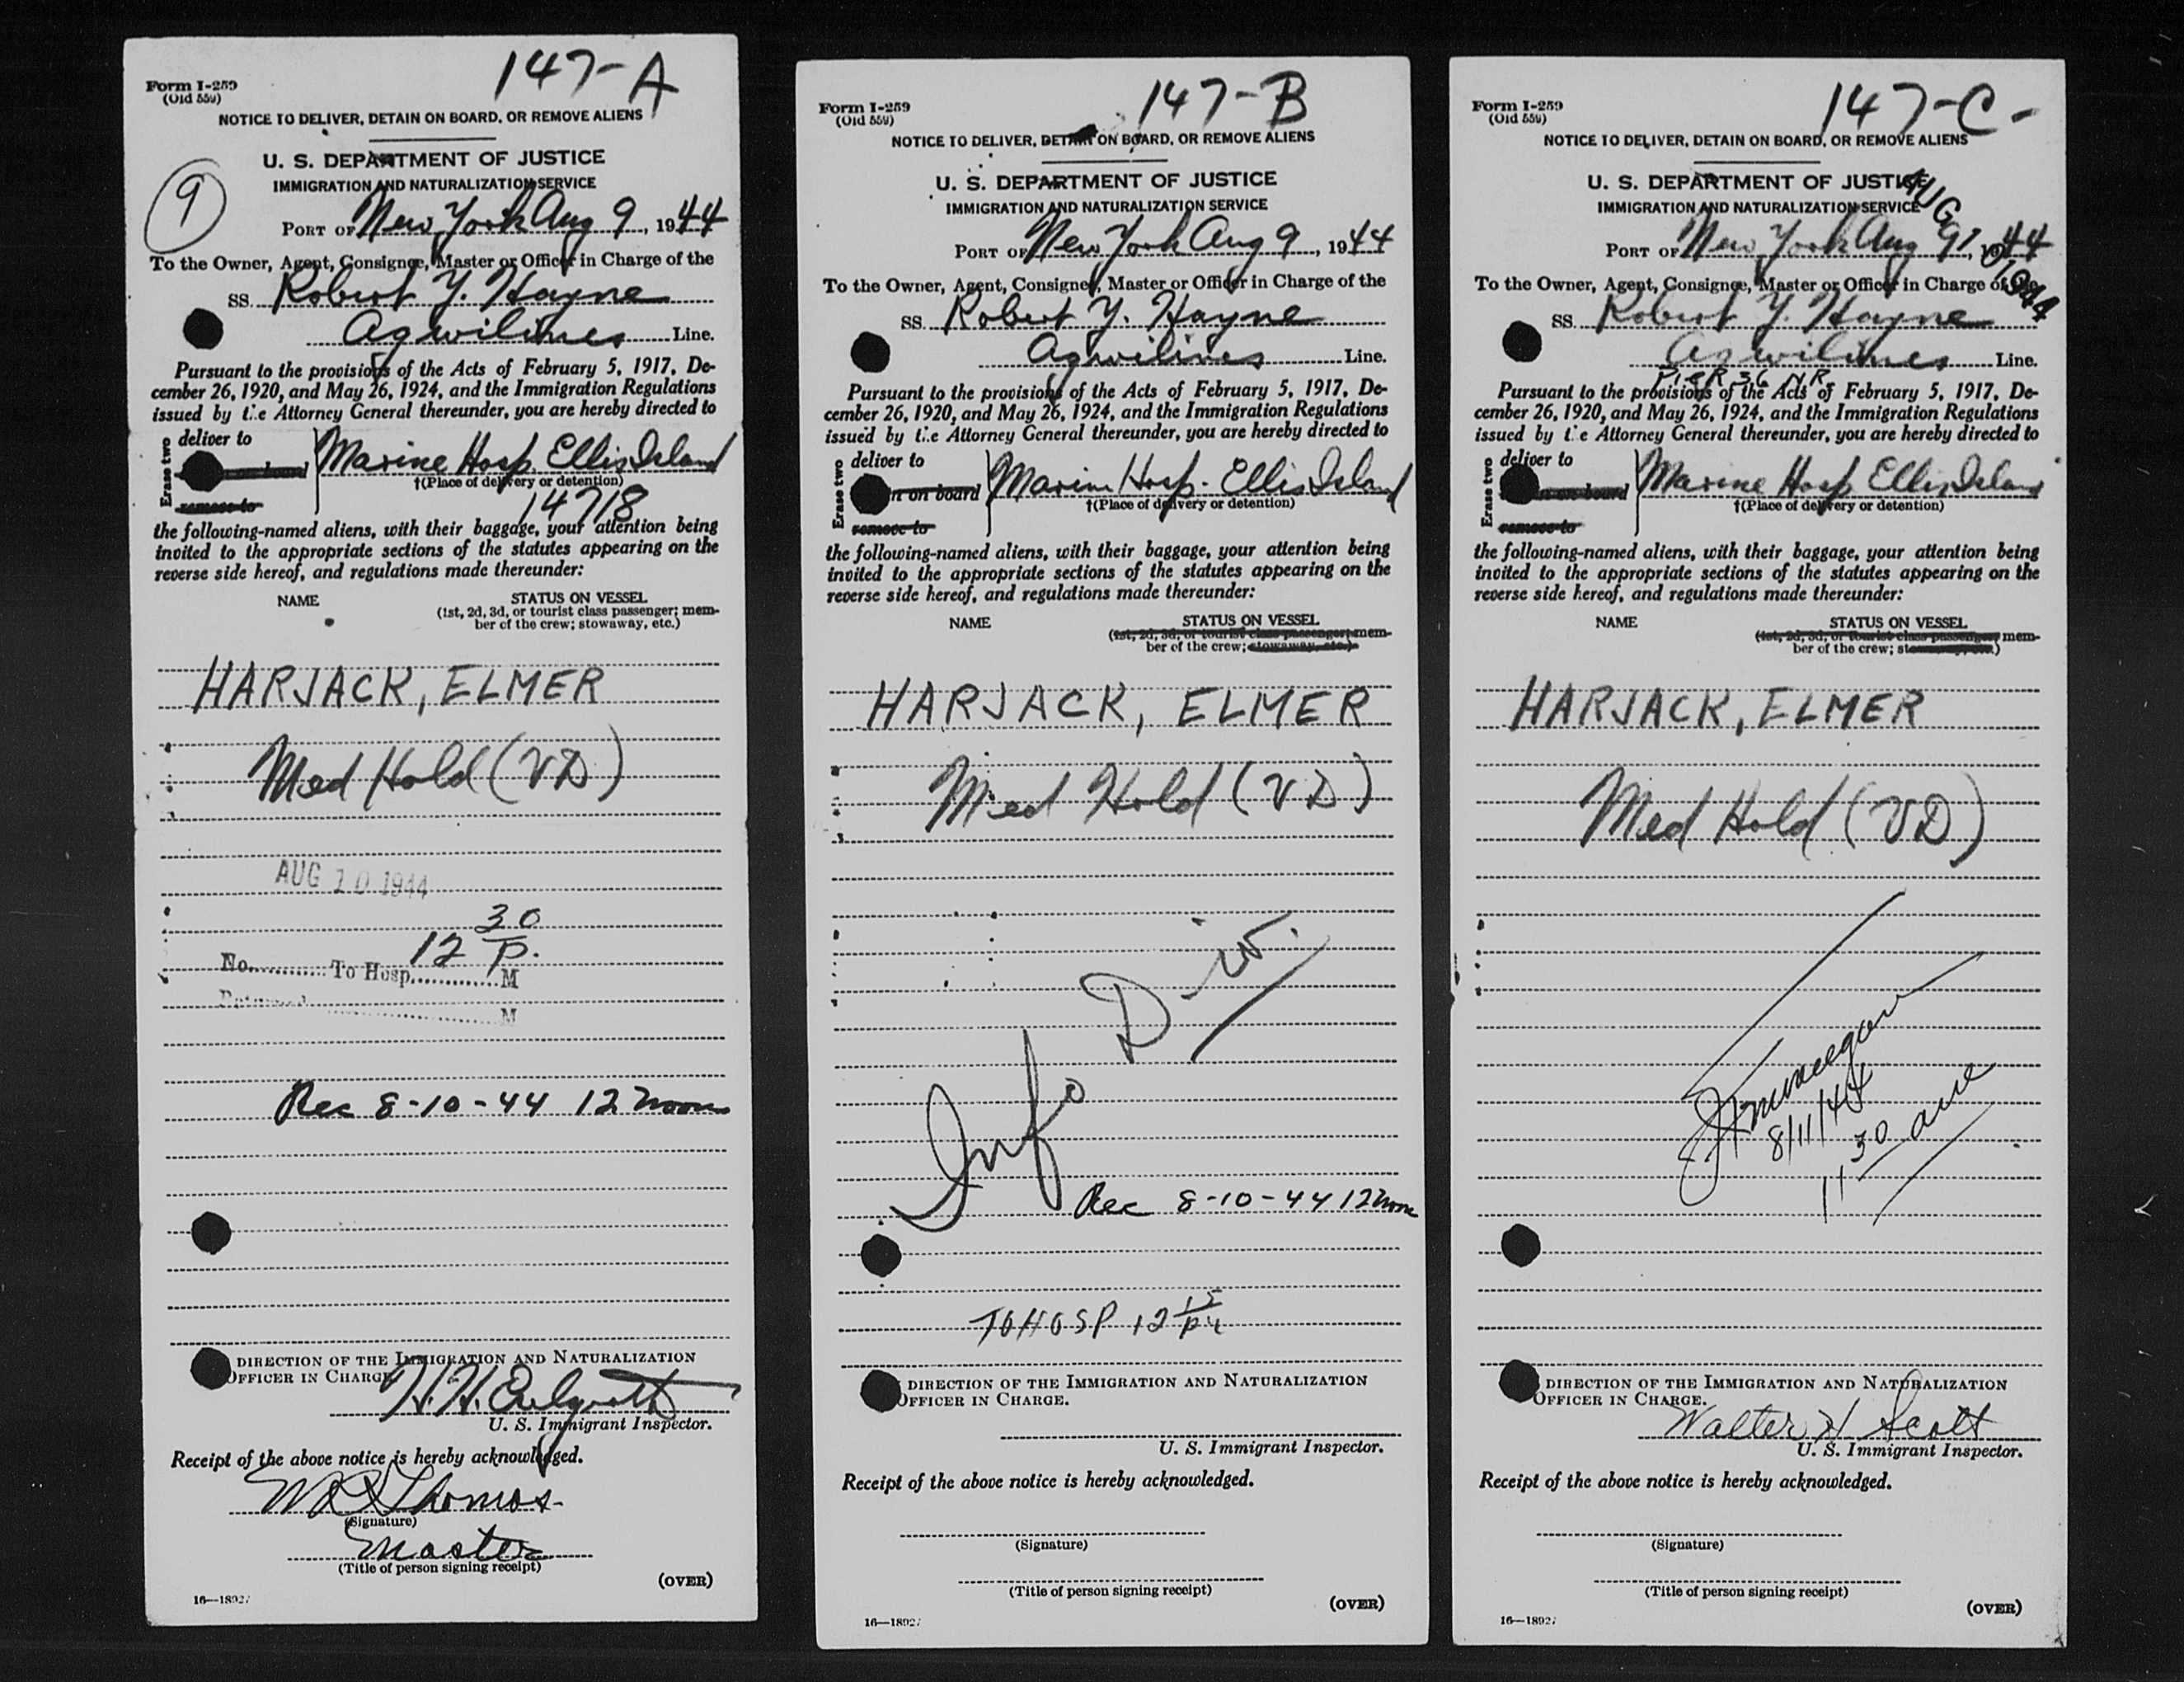 147-A
Form I-259
(Old 559)
NOTICE TO DELIVER, DETAIN ON BOARD, OR REMOVE ALIENS
U. S. DEPARTMENT OF JUSTICE
IMMIGRATION AND NATURALIZATION SERVICE
9
PORT OF New York Aug 9, 1944
To the Owner, Agent, Consignee, Master or Officer in Charge of the
SS. Robert Y. Hayne
Agwilines Line.
Pursuant to the provisions of the Acts of February 5, 1917, De-
cember 26, 1920, and May 26, 1924, and the Immigration Regulations
issued by the Attorney General thereunder, you are hereby directed to
Erase two
deliver to
Marine Hosp. Ellis Island
on board
†(Place of delivery or detention)
remove to
14718
the following-named aliens, with their baggage, your attention being
invited to the appropriate sections of the statutes appearing on the
reverse side hereof, and regulations made thereunder:
NAME STATUS ON VESSEL
(1st, 2d, 3d, or tourist class passenger; mem-
ber of the crew; stowaway, etc.)
HARJACK, ELMER
Med Hold (VD)
AUG 10 1944
12 30 P.
No. To Hosp. M
M
Rec 8-10-44 12 noon
DIRECTION OF THE IMMIGRATION AND NATURALIZATION
OFFICER IN CHARGE
H. H.
U. S. Immigrant Inspector.
Receipt of the above notice is hereby acknowledged.
Thomas
(Signature)
Master
(Title of person signing receipt)
(OVER)
147-B
Form I-259
(Old 559)
NOTICE TO DELIVER, DETAIN ON BOARD, OR REMOVE ALIENS
U. S. DEPARTMENT OF JUSTICE
IMMIGRATION AND NATURALIZATION SERVICE
PORT OF New York Aug 9, 1944
To the Owner, Agent, Consignee, Master or Officer in Charge of the
SS. Robert Y. Hayne
Agwilines Line.
Pursuant to the provisions of the Acts of February 5, 1917, De-
cember 26, 1920, and May 26, 1924, and the Immigration Regulations
issued by the Attorney General thereunder, you are hereby directed to
Erase two
deliver to
Marine Hosp. Ellis Island
n on board
†(Place of delivery or detention)
remove to
the following-named aliens, with their baggage, your attention being
invited to the appropriate sections of the statutes appearing on the
reverse side hereof, and regulations made thereunder:
NAME STATUS ON VESSEL
(1st, 2d, 3d, or tourist class passenger; mem-
ber of the crew; stowaway, etc.)
HARJACK, ELMER
Med Hold (VD)
Info Div.
Rec 8-10-44 12 noon
TO HOSP 12 15
DIRECTION OF THE IMMIGRATION AND NATURALIZATION
OFFICER IN CHARGE.
U. S. Immigrant Inspector.
Receipt of the above notice is hereby acknowledged.
(Signature)
(Title of person signing receipt)
(OVER)
147-C-
Form I-259
(Old 559)
NOTICE TO DELIVER, DETAIN ON BOARD, OR REMOVE ALIENS
U. S. DEPARTMENT OF JUSTICE
IMMIGRATION AND NATURALIZATION SERVICE
AUG 9 1944
PORT OF New York Aug 9, 1944
To the Owner, Agent, Consignee, Master or Officer in Charge of the
SS. Robert Y. Hayne
Agwilines Line.
PIER 36 N.R.
Pursuant to the provisions of the Acts of February 5, 1917, De-
cember 26, 1920, and May 26, 1924, and the Immigration Regulations
issued by the Attorney General thereunder, you are hereby directed to
Erase two
deliver to
Marine Hosp Ellis Island
on board
†(Place of delivery or detention)
remove to
the following-named aliens, with their baggage, your attention being
invited to the appropriate sections of the statutes appearing on the
reverse side hereof, and regulations made thereunder:
NAME STATUS ON VESSEL
(1st, 2d, 3d, or tourist class passenger; mem-
ber of the crew; stowaway, etc.)
HARJACK, ELMER
Med Hold (VD)
8/11/44
11 30
DIRECTION OF THE IMMIGRATION AND NATURALIZATION
OFFICER IN CHARGE.
Walter H Scott
U. S. Immigrant Inspector.
Receipt of the above notice is hereby acknowledged.
(Signature)
(Title of person signing receipt)
(OVER)